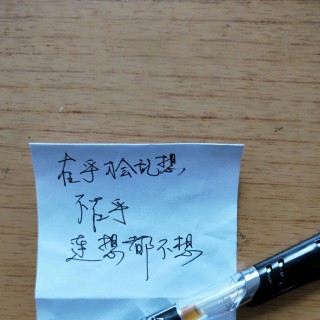 在乎才会乱想，
不在乎
连想都不想